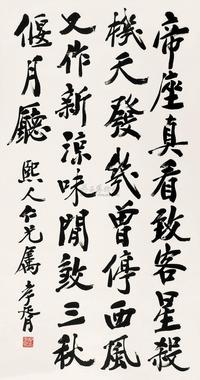 帝座真看致客星殺
機天發幾曾停西風
又作新涼味閒敦三秋
偃月廳
熙人仁兄屬 孝胥